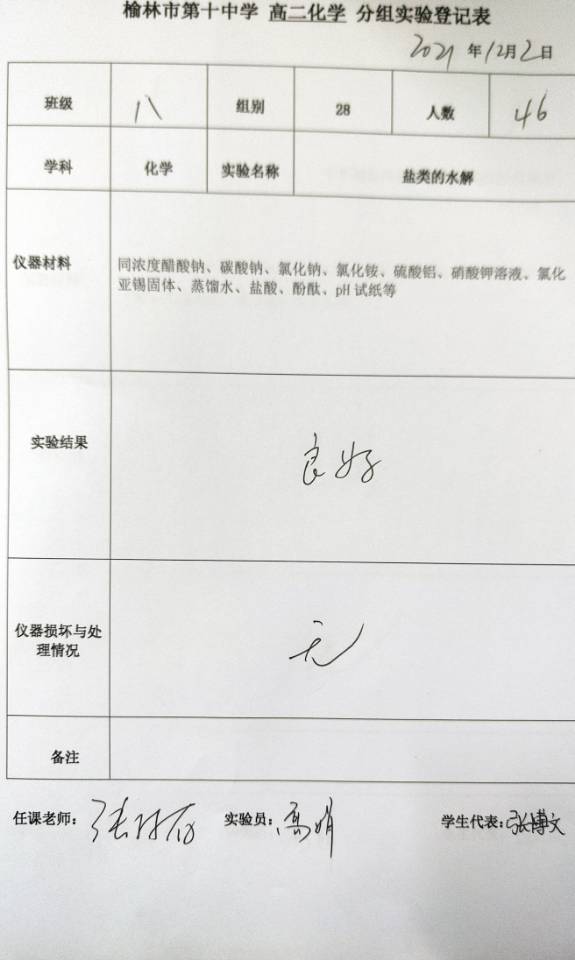 榆林市第十中学 高二化学 分组实验登记表
2021 年12月2日
班级 八 组别 28 人数 46
学科 化学 实验名称 盐类的水解
仪器材料
同浓度醋酸钠、碳酸钠、氯化钠、氯化铵、硫酸铝、硝酸钾溶液、氯化
亚锡固体、蒸馏水、盐酸、酚酞、pH 试纸等
实验结果 良好
仪器损坏与处
理情况
无
备注
任课老师: 张 实验员: 高娟 学生代表: 张博文